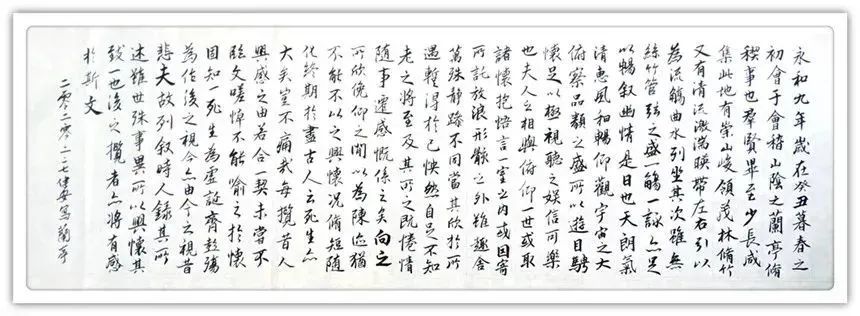 永和九年歲在癸丑暮春之
初會于會稽山陰之蘭亭脩
稧事也群賢畢至少長咸
集此地有崇山峻領茂林脩竹
又有清流激湍暎帶左右引以
為流觴曲水列坐其次雖無
絲竹管弦之盛一觴一詠亦足
以暢叙幽情是日也天朗氣
清惠風和暢仰觀宇宙之大
俯察品類之盛所以遊目騁
懷足以極視聽之娛信可樂
也夫人之相與俯仰一世或取
諸懷抱悟言一室之内或因寄
所託放浪形骸之外雖趣舍
萬殊静躁不同當其欣於所
遇蹔得於己怏然自足不知
老之將至及其所之既惓情
隨事遷感慨係之矣向之
所欣俛仰之閒以為陳迹猶
不能不以之興懷況脩短隨
化終期於盡古人云死生亦
大矣豈不痛哉每攬昔人
興感之由若合一契未嘗不
臨文嗟悼不能喻之於懷
固知一死生為虛誕齊彭殤
為妄作後之視今亦由今之視昔
悲夫故列叙時人録其所
述雖世殊事異所以興懷其
致一也後之攬者亦將有感
於斯文
二零二零 一二七 寫蘭亭